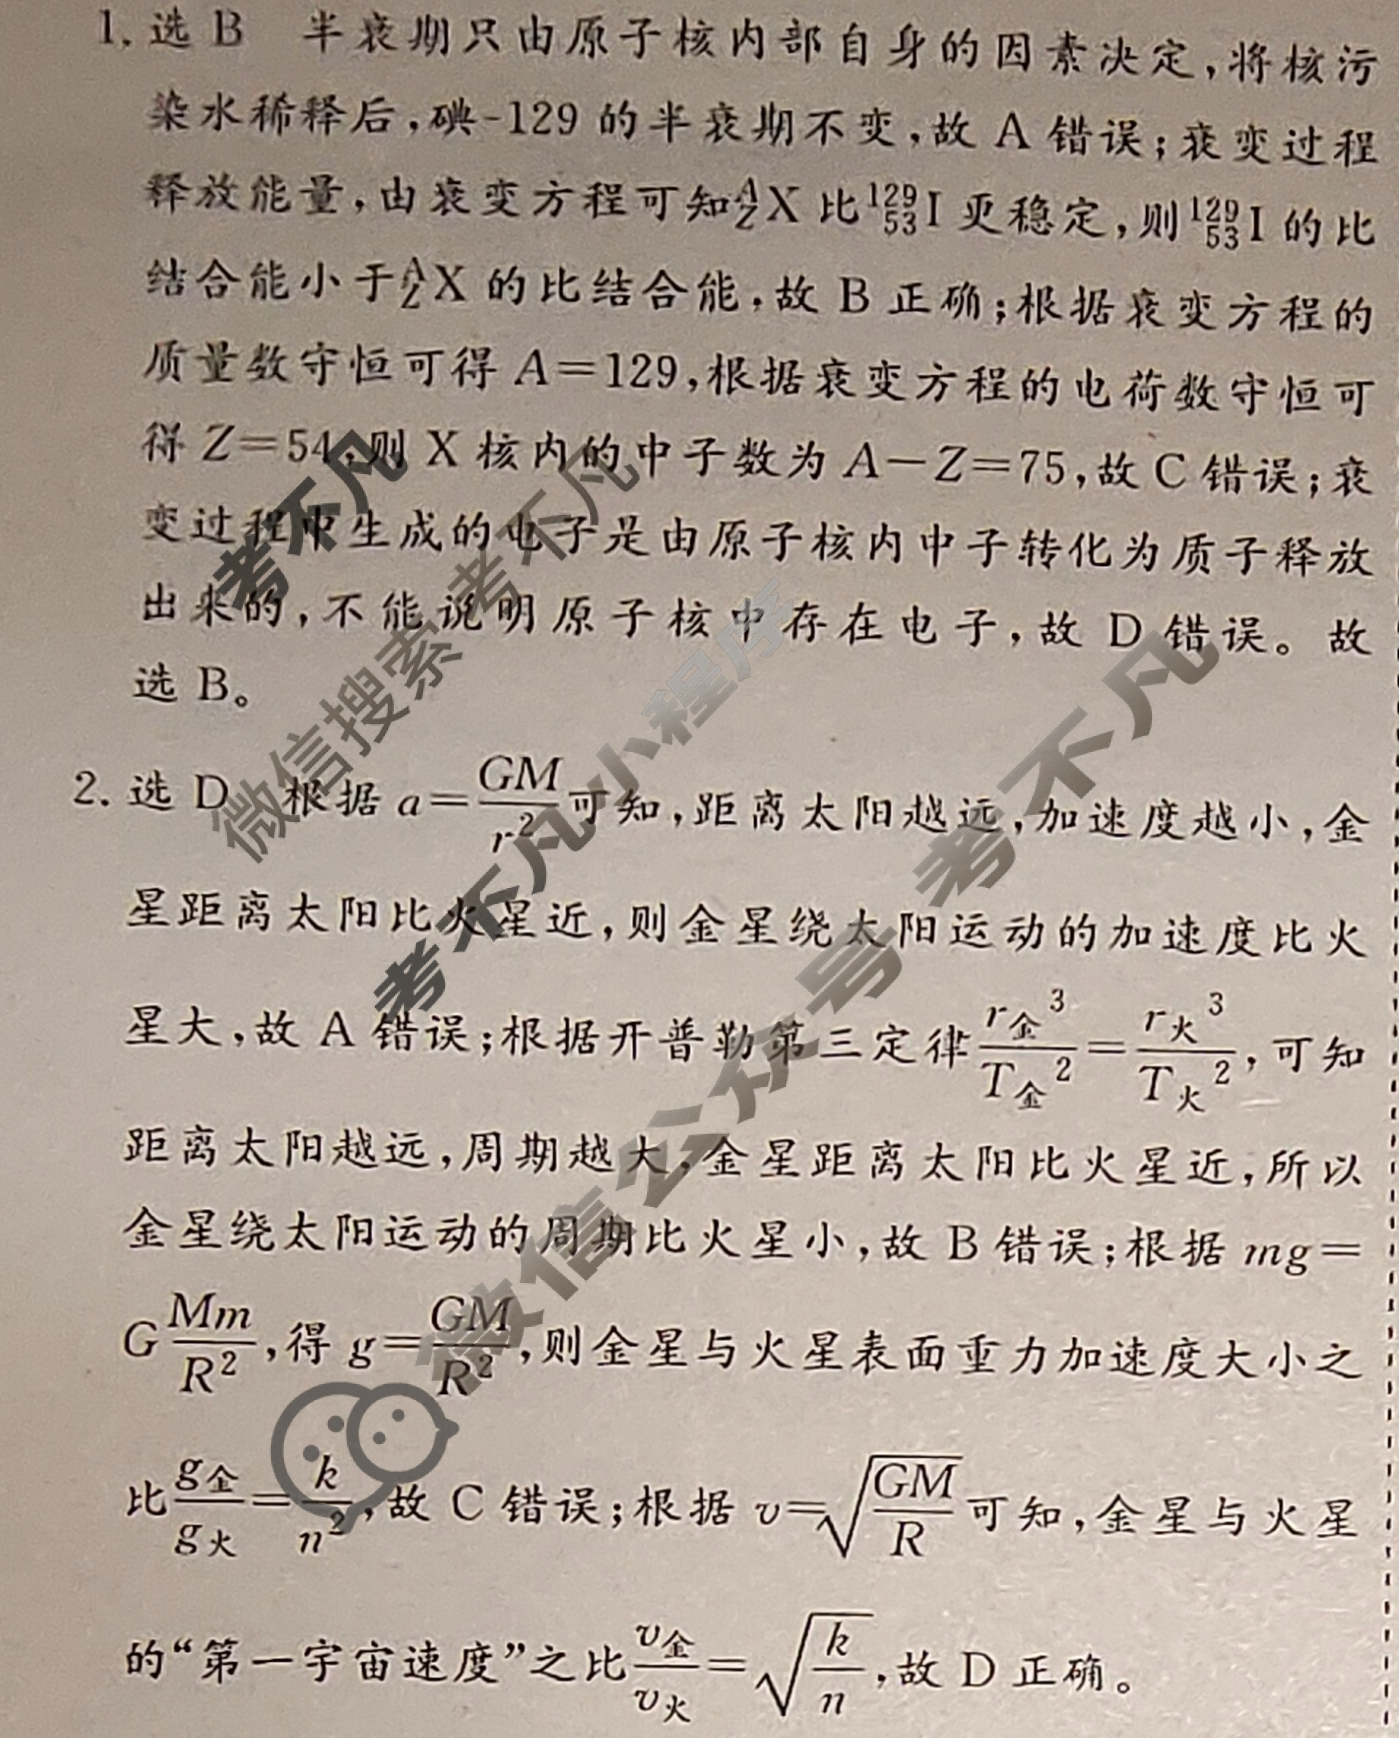 1. 选 B 半衰期只由原子核内部自身的因素决定,将核污
染水稀释后,碘-129 的半衰期不变,故 A 错误;衰变过程
释放能量,由衰变方程可知$^{A}_{Z}$X 比$^{129}_{53}$I 更稳定,则$^{129}_{53}$I 的比
结合能小于$^{A}_{Z}$X 的比结合能,故 B 正确;根据衰变方程的
质量数守恒可得 A=129,根据衰变方程的电荷数守恒可
得 Z=54,则 X 核内的中子数为 A-Z=75,故 C 错误;衰
变过程中生成的电子是由原子核内中子转化为质子释放
出来的,不能说明原子核中存在电子,故 D 错误。故
选 B。
2. 选 D 根据 $a=\frac{GM}{r^2}$可知,距离太阳越远,加速度越小,金
星距离太阳比火星近,则金星绕太阳运动的加速度比火
星大,故 A 错误;根据开普勒第三定律$\frac{r_金^3}{T_金^2}=\frac{r_火^3}{T_火^2}$,可知
距离太阳越远,周期越大,金星距离太阳比火星近,所以
金星绕太阳运动的周期比火星小,故 B 错误;根据 mg=
$G\frac{Mm}{R^2}$,得 $g=\frac{GM}{R^2}$,则金星与火星表面重力加速度大小之
比$\frac{g_金}{g_火}=\frac{k}{n^2}$,故 C 错误;根据 $v=\sqrt{\frac{GM}{R}}$可知,金星与火星
的“第一宇宙速度”之比$\frac{v_金}{v_火}=\sqrt{\frac{k}{n}}$,故 D 正确。
考不凡
微信搜索 考不凡
考不凡小程序
微信公众号 考不凡